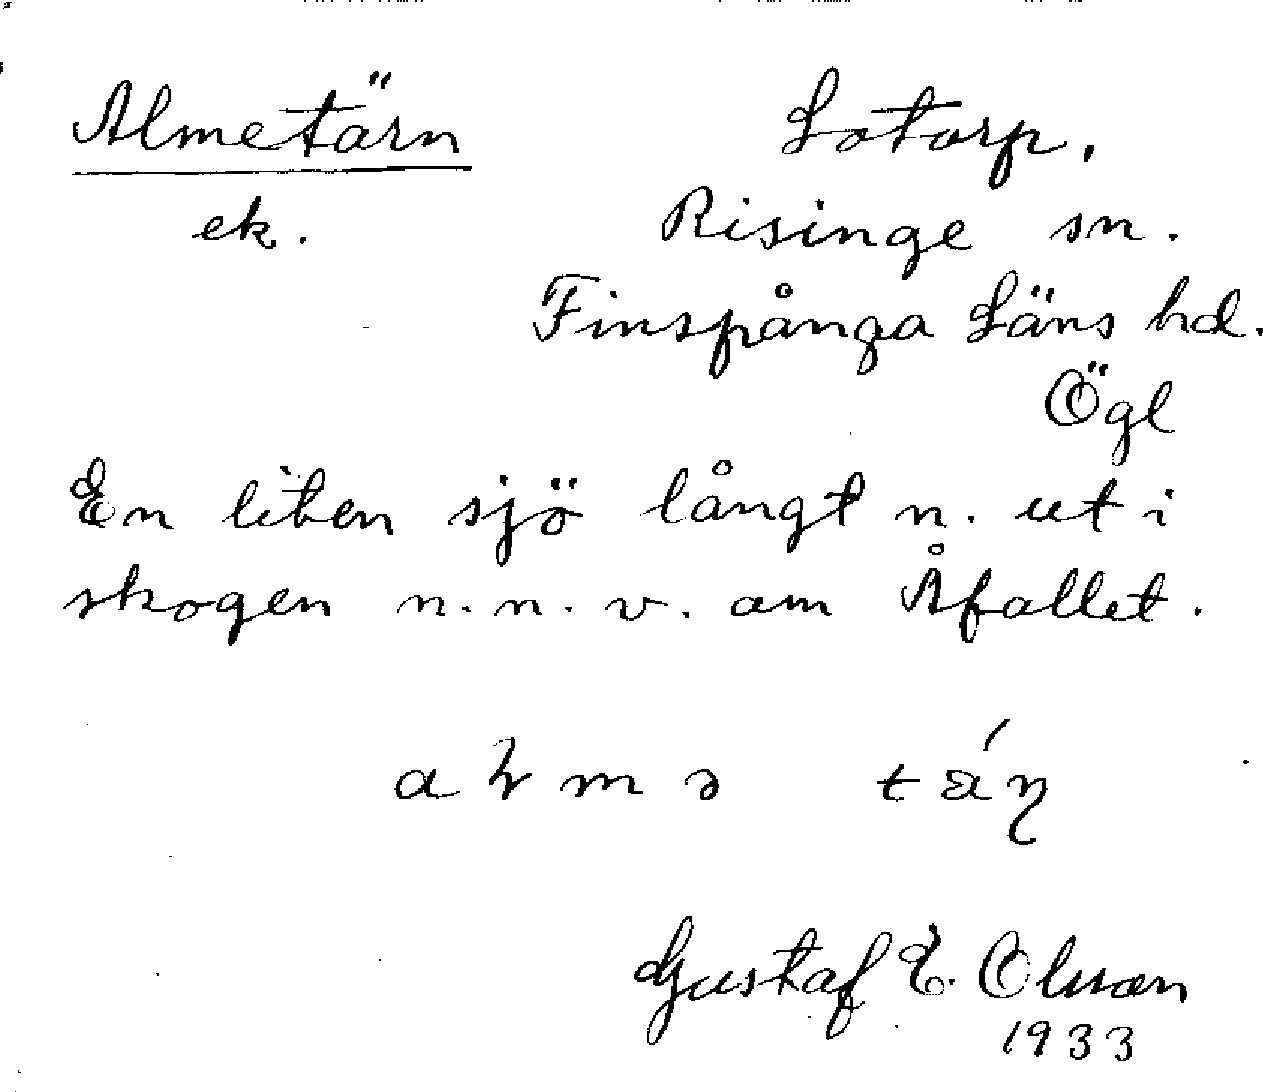 Almetärn
ek.
Lotorp,
Risinge sn.
Finspånga Läns hd.
Ögl
En liten sjö långt n. ut i
skogen n.n.v. om Åfallet.
Gustaf E. Olsson
1933